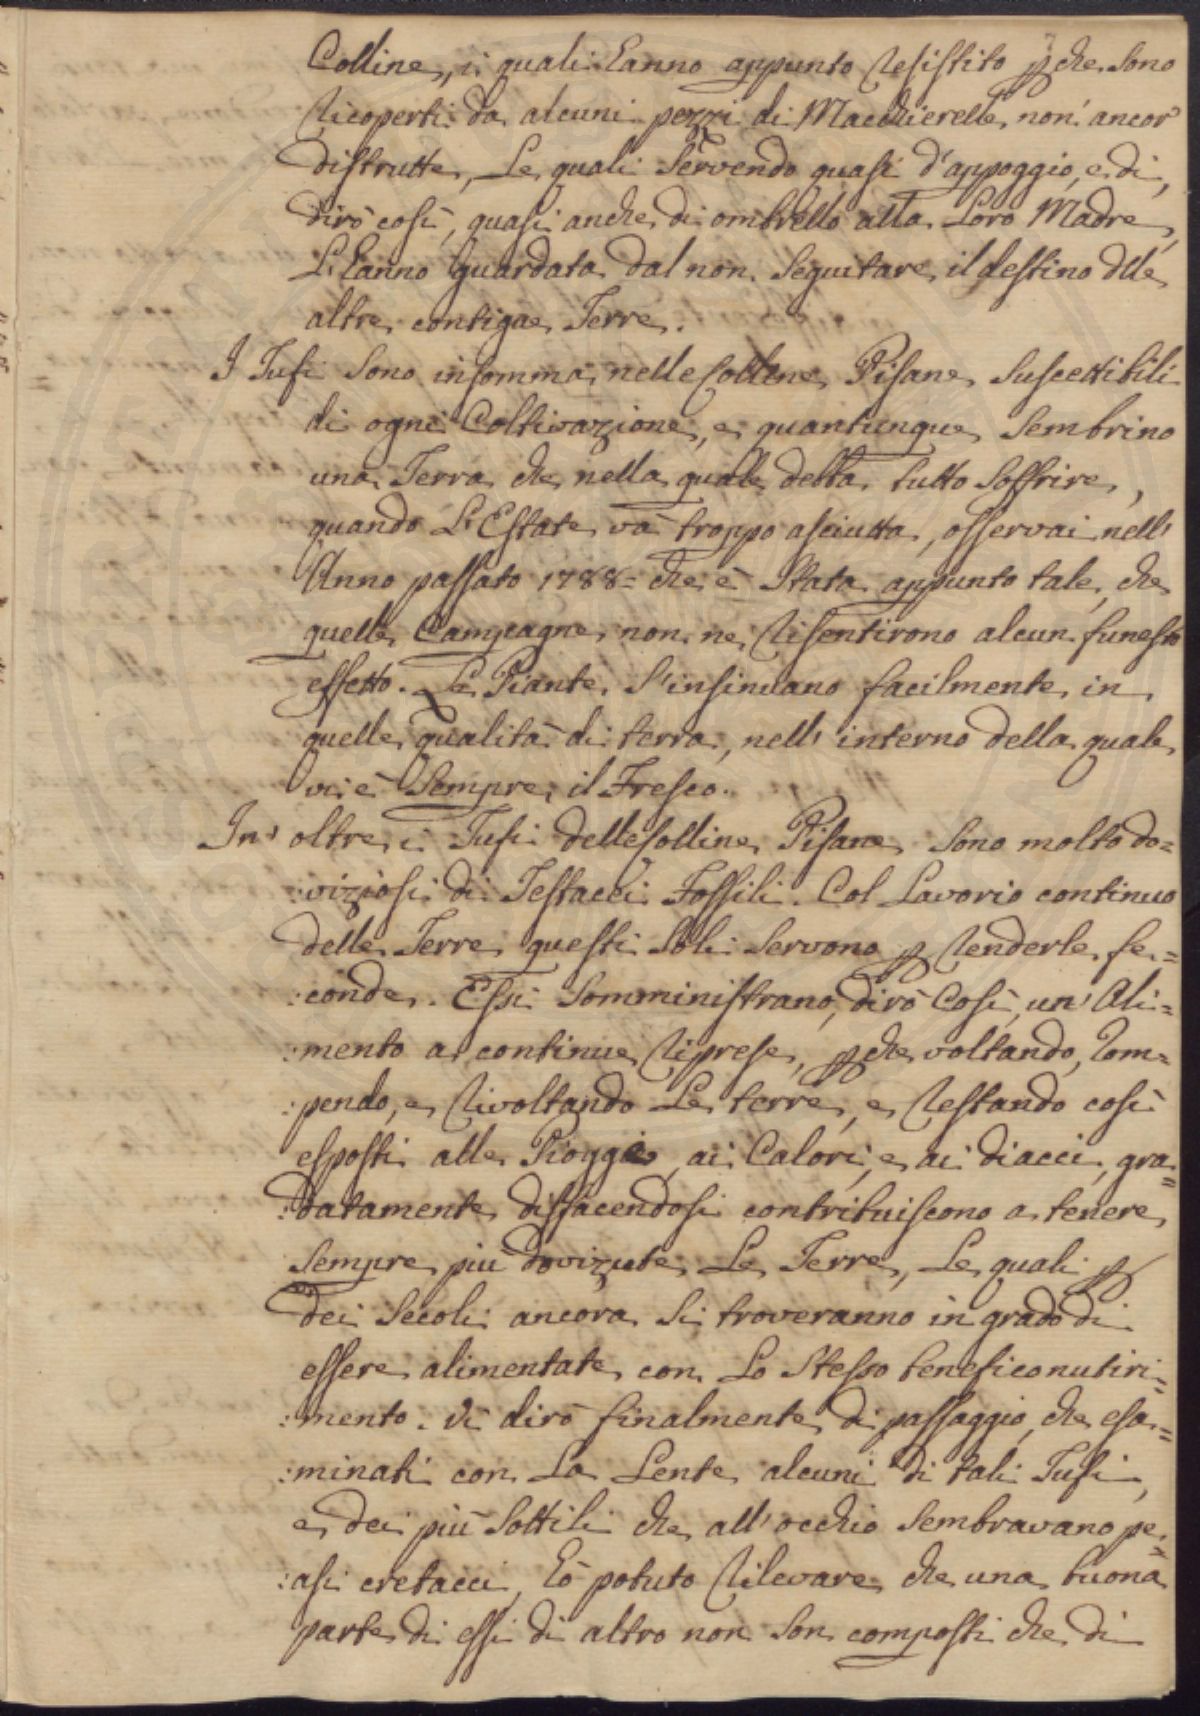 Colline, i quali hanno appunto resistito pche sono
ricoperti da alcuni pezzi di Macchierelle non' ancor
distrutte, Le quali servendo quasi d'appoggio, e di,
dirò così, quasi anche di ombrello alla Loro Madre,
L'hanno guardata dal non seguitare il destino dlle
altre contigae Terre.
I Tufi sono insomma nelle Colline Pisane suscettibili
di ogni Coltivazione, e quantunque sembrino
una Terra che nella quale debba tutto soffrire,
quando L'Estate và troppo asciutta, osservai nell'
Anno passato 1788= che è stata appunto tale, che
quelle Campagne non ne risentirono alcun funesto
effetto. Le Piante s'insinuano facilmente in
quelle qualità di terra, nell' interno della quale
vi è sempre il Fresco.
In' oltre i Tufi delle Colline Pisane sono molto do=
:viziosi di Testacei Fossili. Col Lavorio continuo
delle Terre questi soli servono p renderle fe=
:conde. Essi somministrano, dirò così, un' Ali=
:mento a continue riprese, pche voltando, rom=
:pendo, e rivoltando Le terre, e restando così
esposti alle Pioggie, ai Calori, e ai diacci, gra=
:datamente disfacendosi contribuiscono a tenere
sempre più doviziate Le Terre, Le quali p
dei secoli ancora si troveranno in grado di
essere alimentate con Lo stesso benefico nutiri=
:mento. Vi dirò finalmente di passaggio, che esa=
:minati con La Lente alcuni di tali Tufi,
e dei più sottili che all' occhio sembravano pe=
:asi cretacei, hò potuto rilevare che una buona
parte di essi di altro non son composti che di